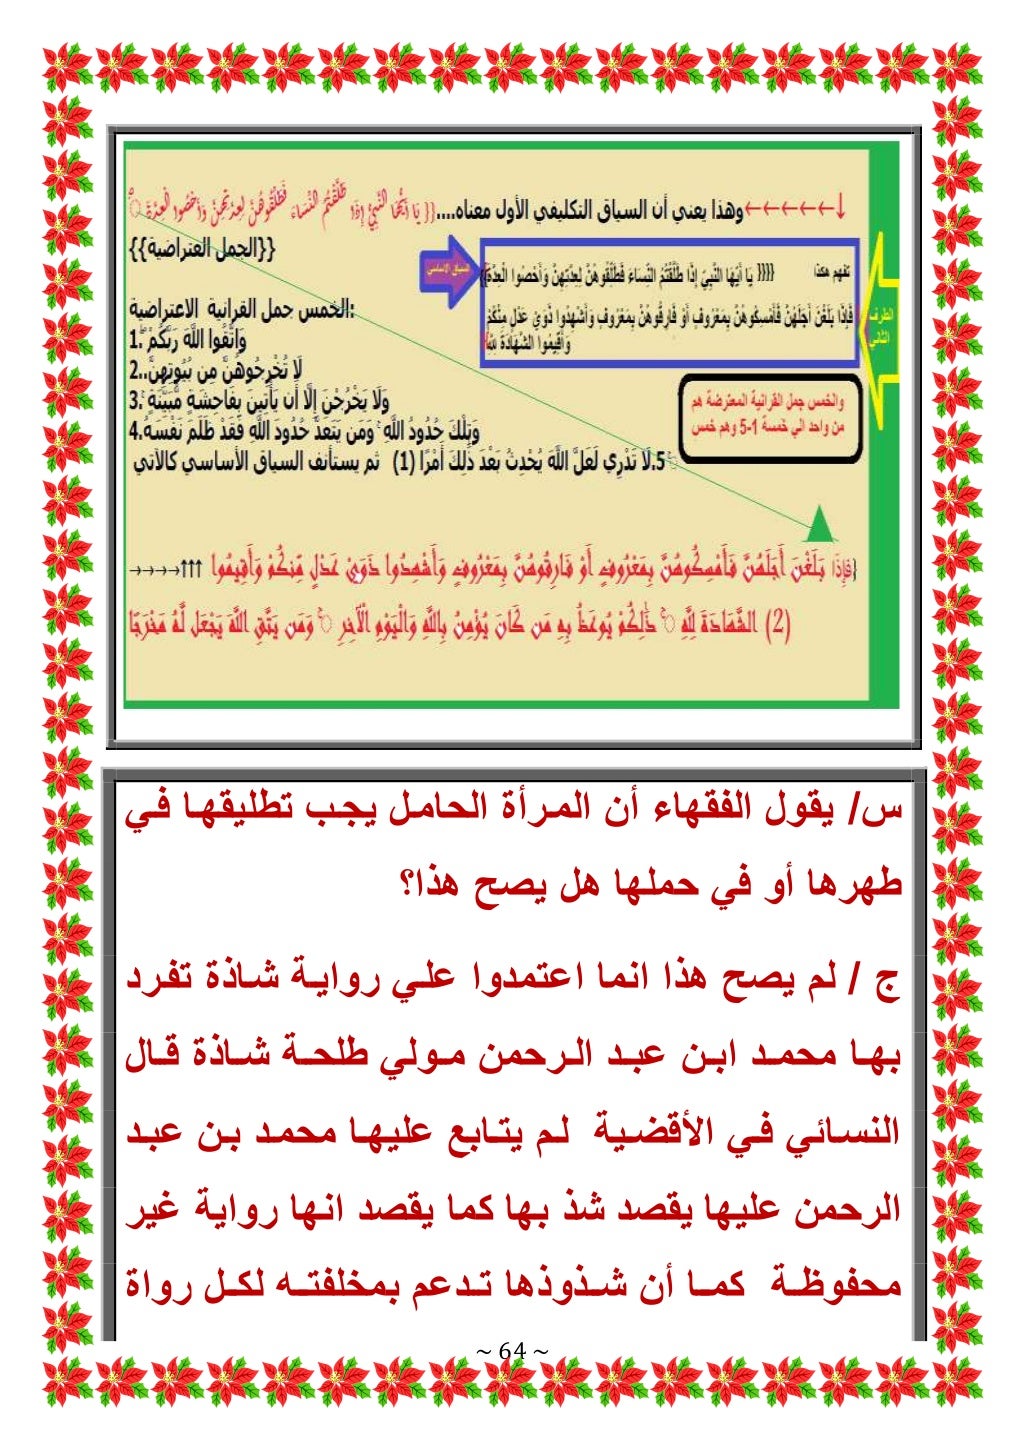 ↓←←←←←وهذا يعني أن السياق التكليفي الأول معناه....{{ يَا أَيُّهَا النَّبِيُّ إِذَا طَلَّقْتُمُ النِّسَاءَ فَطَلِّقُوهُنَّ لِعِدَّتِهِنَّ وَأَحْصُوا الْعِدَّةَ ۖ
{{الجمل العتراضية}}
السياق الاساسي
تفهم هكذا {{{{ يَا أَيُّهَا النَّبِيُّ إِذَا طَلَّقْتُمُ النِّسَاءَ فَطَلِّقُوهُنَّ لِعِدَّتِهِنَّ وَأَحْصُوا الْعِدَّةَ}}
فَإِذَا بَلَغْنَ أَجَلَهُنَّ فَأَمْسِكُوهُنَّ بِمَعْرُوفٍ أَوْ فَارِقُوهُنَّ بِمَعْرُوفٍ وَأَشْهِدُوا ذَوَيْ عَدْلٍ مِنْكُمْ
وَأَقِيمُوا الشَّهَادَةَ لِلَّهِ
الطرف
الثاني
الخمس جمل القرانية الاعتراضية:
1. وَاتَّقُوا اللَّهَ رَبَّكُمْ ۖ
2.. لَا تُخْرِجُوهُنَّ مِن بُيُوتِهِنَّ
3. وَلَا يَخْرُجْنَ إِلَّا أَن يَأْتِينَ بِفَاحِشَةٍ مُّبَيِّنَةٍ ۚ
4. وَتِلْكَ حُدُودُ اللَّهِ ۚ وَمَن يَتَعَدَّ حُدُودَ اللَّهِ فَقَدْ ظَلَمَ نَفْسَهُ
ۚ 5. لَا تَدْرِي لَعَلَّ اللَّهَ يُحْدِثُ بَعْدَ ذَٰلِكَ أَمْرًا (1) ثم يستأنف السياق الأساسي كالآتي
والخمس جمل القرانية المعترضة هم
من واحد الي خمسة 1-5 وهم خمس
{فَإِذَا بَلَغْنَ أَجَلَهُنَّ فَأَمْسِكُوهُنَّ بِمَعْرُوفٍ أَوْ فَارِقُوهُنَّ بِمَعْرُوفٍ وَأَشْهِدُوا ذَوَيْ عَدْلٍ مِّنكُمْ وَأَقِيمُوا ↑↑↑→→→→
(2) الشَّهَادَةَ لِلَّهِ ۚ ذَٰلِكُمْ يُوعَظُ بِهِ مَن كَانَ يُؤْمِنُ بِاللَّهِ وَالْيَوْمِ الْآخِرِ ۚ وَمَن يَتَّقِ اللَّهَ يَجْعَل لَّهُ مَخْرَجًا
س/ يقول الفقهاء أن المرأة الحامل يجب تطليقها في
طهرها أو في حملها هل يصح هذا؟
ج / لم يصح هذا انما اعتمدوا علي رواية شاذة تفرد
بها محمد ابن عبد الرحمن مولي طلحة شاذة قال
النسائي في الأقضية لم يتابع عليها محمد بن عبد
الرحمن عليها يقصد شذ بها كما يقصد انها رواية غير
محفوظة كما أن شذوذها تدعم بمخلفته لكل رواة
~ 64 ~